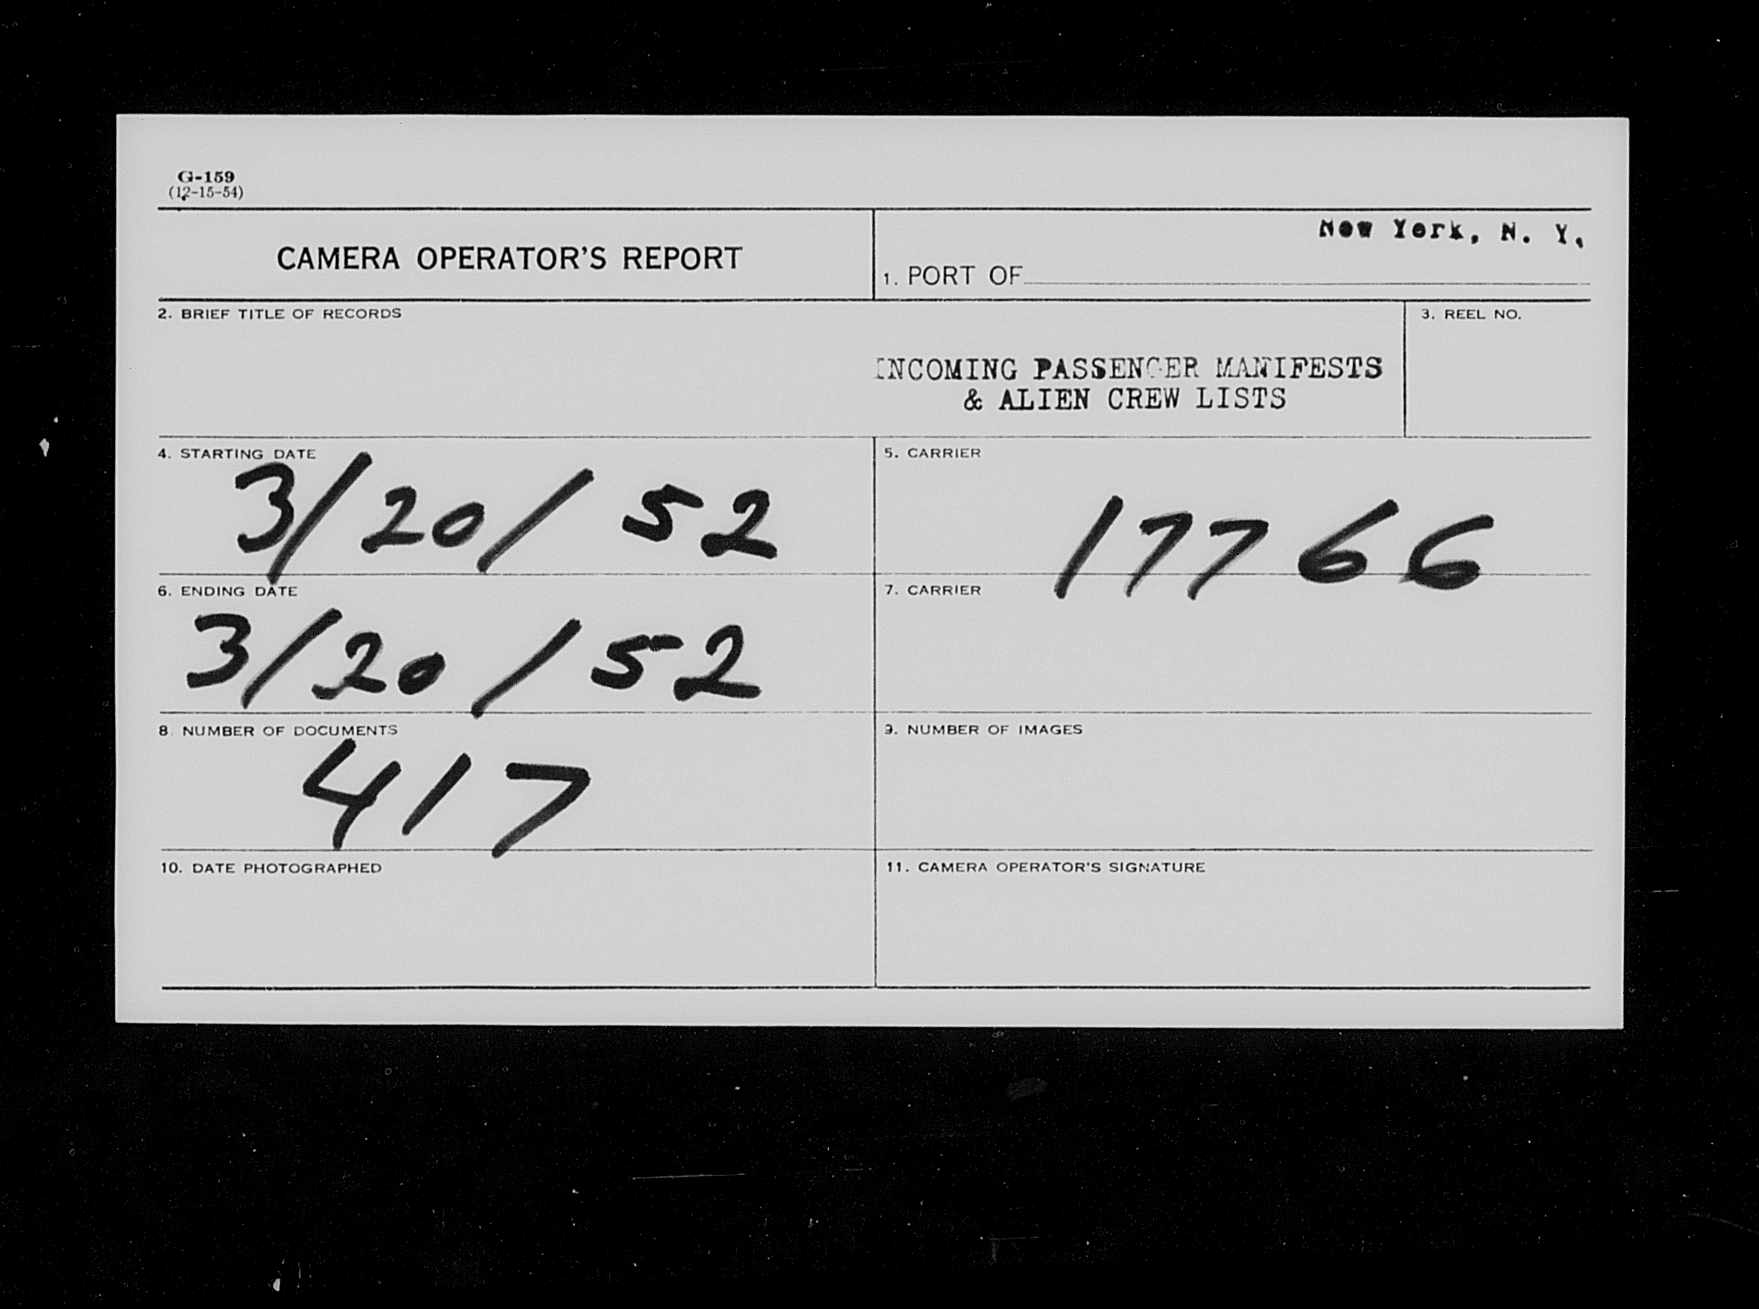 G-159
(12-15-54)
CAMERA OPERATOR'S REPORT
New York, N. Y.
1. PORT OF
2. BRIEF TITLE OF RECORDS
INCOMING PASSENGER MANIFESTS
& ALIEN CREW LISTS
3. REEL NO.
4. STARTING DATE
3/20/52
5. CARRIER
17766
6. ENDING DATE
3/20/52
7. CARRIER
8. NUMBER OF DOCUMENTS
417
9. NUMBER OF IMAGES
10. DATE PHOTOGRAPHED
11. CAMERA OPERATOR'S SIGNATURE